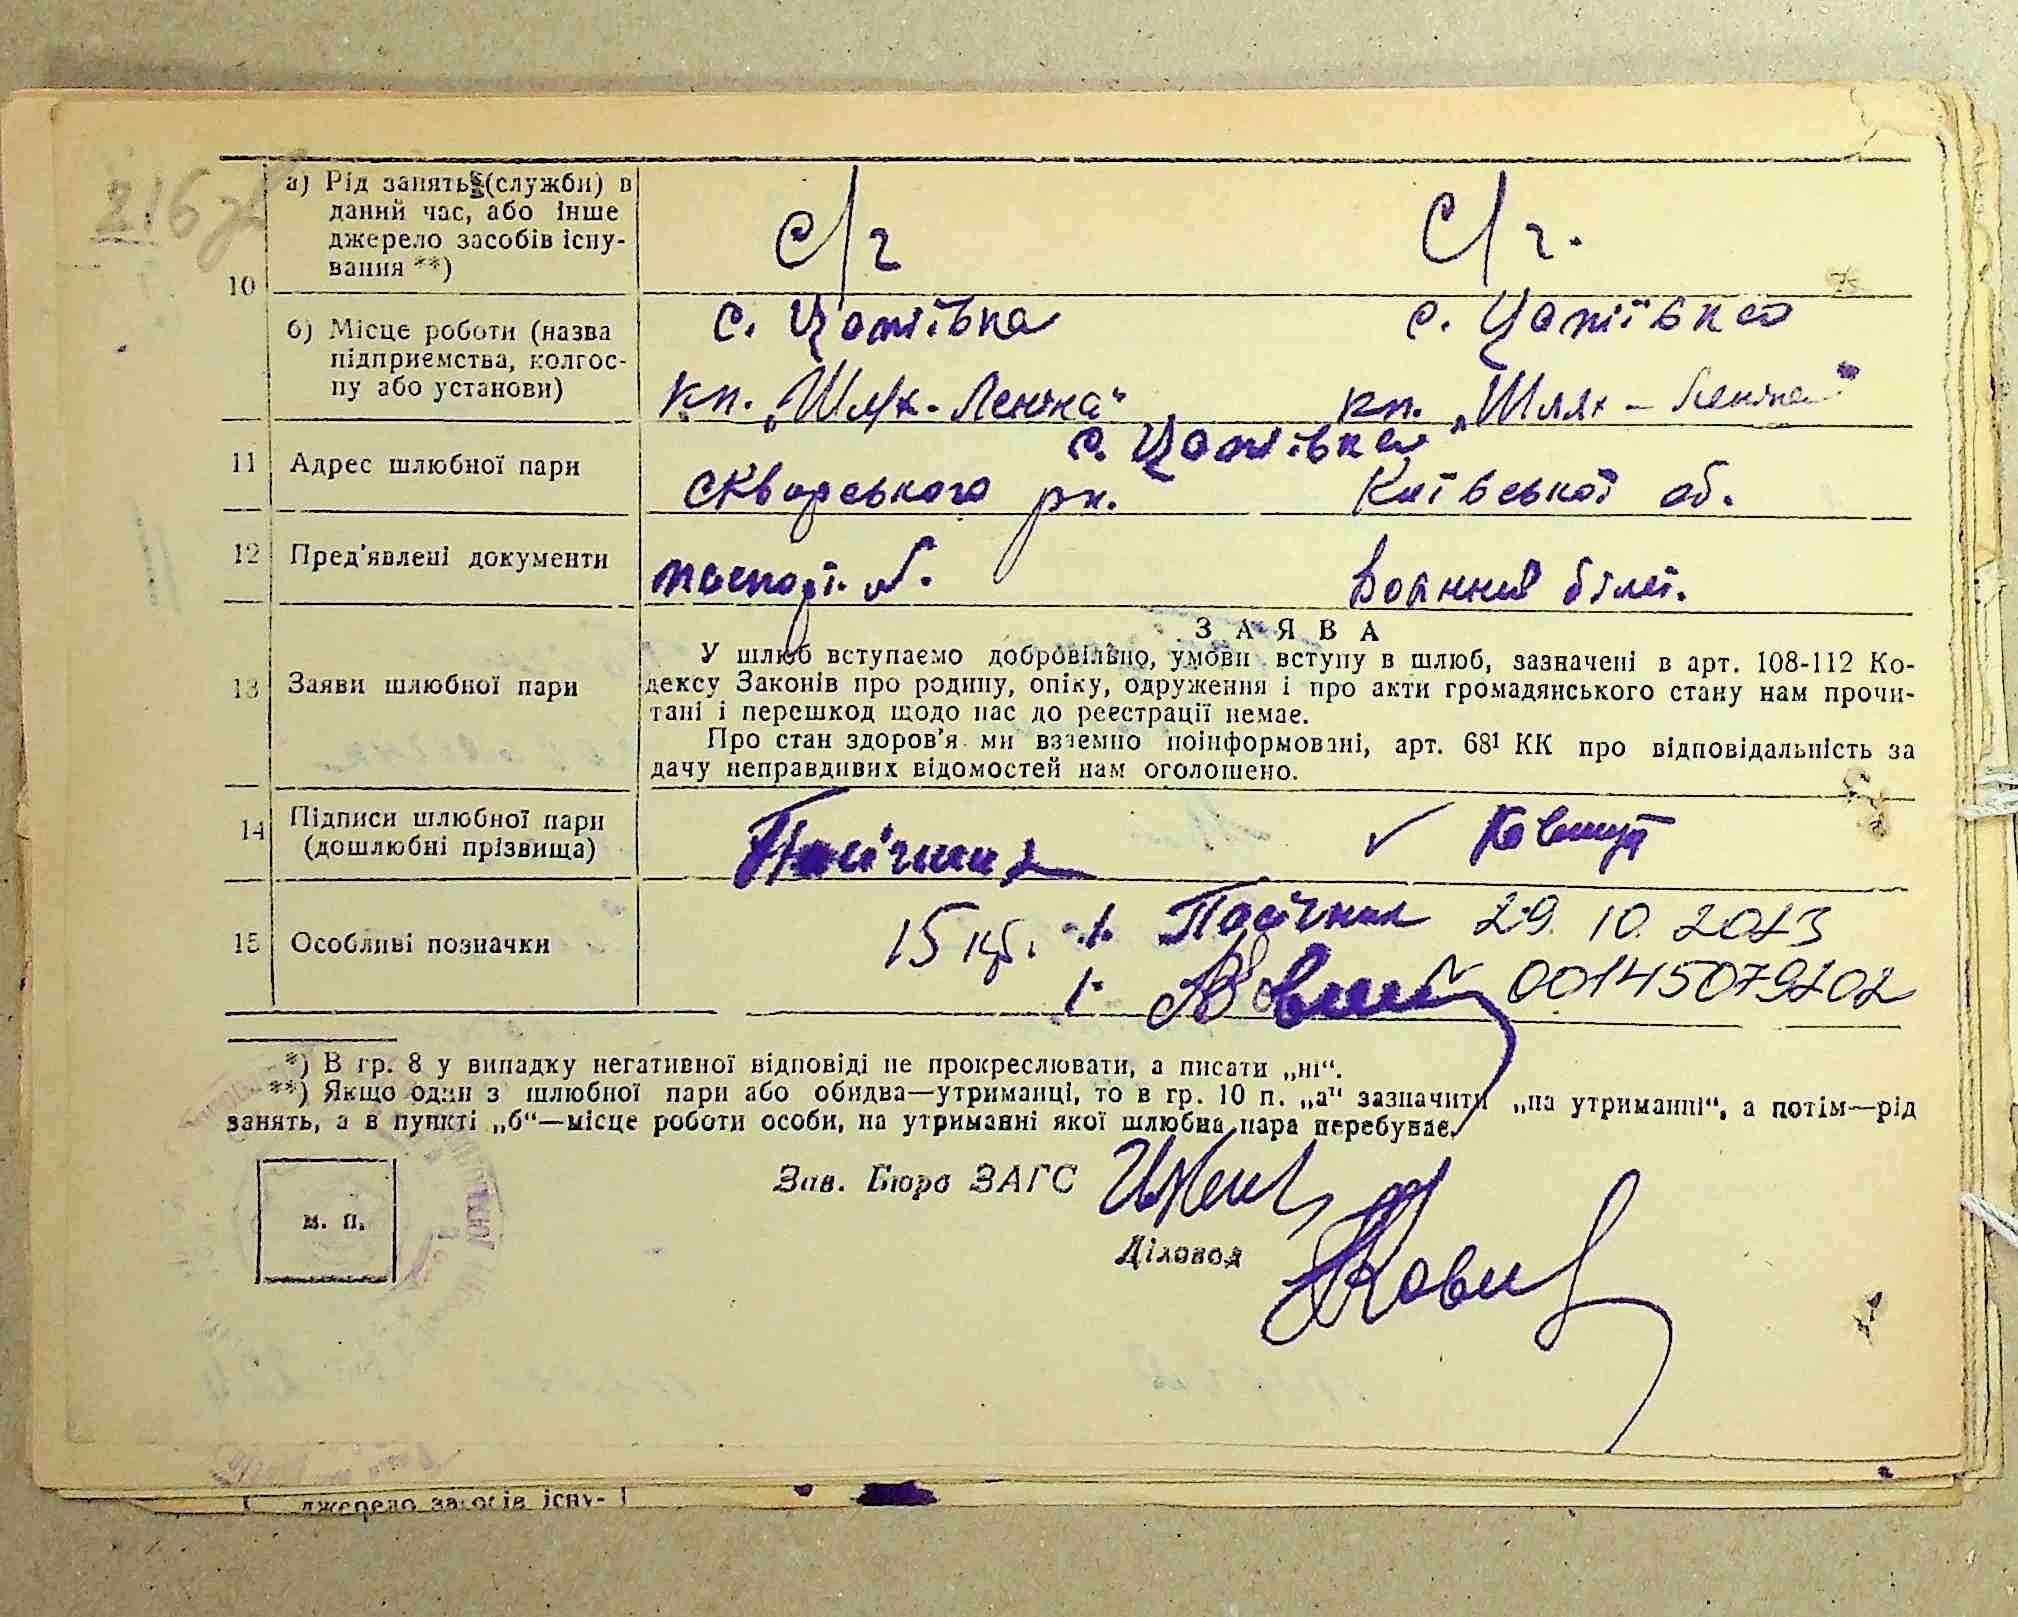 216 зв
10
а) Рід занять (служби) в
даний час, або інше
джерело засобів існу-
вання **)
с/г
с/г.
б) Місце роботи (назва
підприємства, колгос-
пу або установи)
с. Цапіївка
с. Цапіївка
кп. „Шлях-Леніна"
кп. „Шлях-Леніна"
11
Адрес шлюбної пари
с. Цапіївка
Сквирського рн. Київської об.
12
Пред'явлені документи
паспорт.
Воєнний білет.
13
Заяви шлюбної пари
ЗАЯВА
У шлюб вступаємо добровільно, умови вступу в шлюб, зазначені в арт. 108-112 Ко-
дексу Законів про родину, опіку, одруження і про акти громадянського стану нам прочи-
тані і перешкод щодо нас до реєстрації немає.
Про стан здоров'я ми взаємно поінформовані, арт. 68¹ КК про відповідальність за
дачу неправдивих відомостей нам оголошено.
14
Підписи шлюбної пари
(дошлюбні прізвища)
Пасічник
15
Особливі позначки
15 кр. 1. Пасічник 29.10.2013
1. 00145079202
*) В гр. 8 у випадку негативної відповіді не прокреслювати, а писати „ні“.
**) Якщо один з шлюбної пари або обидва—утриманці, то в гр. 10 п. „а“ зазначити „на утриманні“, а потім—рід
занять, а в пункті „б“—місце роботи особи, на утриманні якої шлюбна пара перебуває.
Зав. Бюро ЗАГС
м. п.
Діловод
джерело засобів існу-